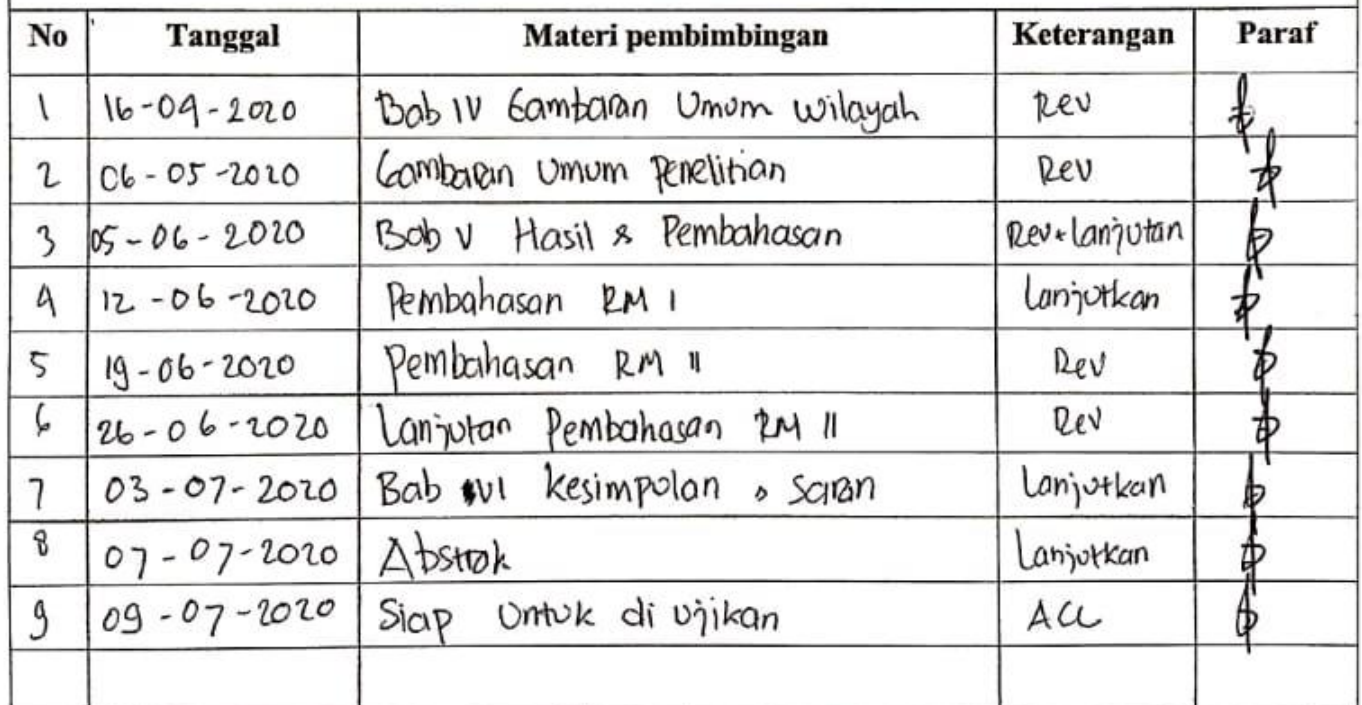 No Tanggal Materi pembimbingan Keterangan Paraf
1 16-04-2020 Bab IV Gambaran Umum Wilayah Rev
2 06-05-2020 Gambaran Umum Penelitian Rev
3 05-06-2020 Bab V Hasil & Pembahasan Rev+lanjutan
4 12-06-2020 Pembahasan RM I Lanjutkan
5 19-06-2020 Pembahasan RM II Rev
6 26-06-2020 Lanjutan Pembahasan RM II Rev
7 03-07-2020 Bab VI Kesimpulan & Saran Lanjutkan
8 07-07-2020 Abstrak Lanjutkan
9 09-07-2020 Siap Untuk di Ujikan ACC